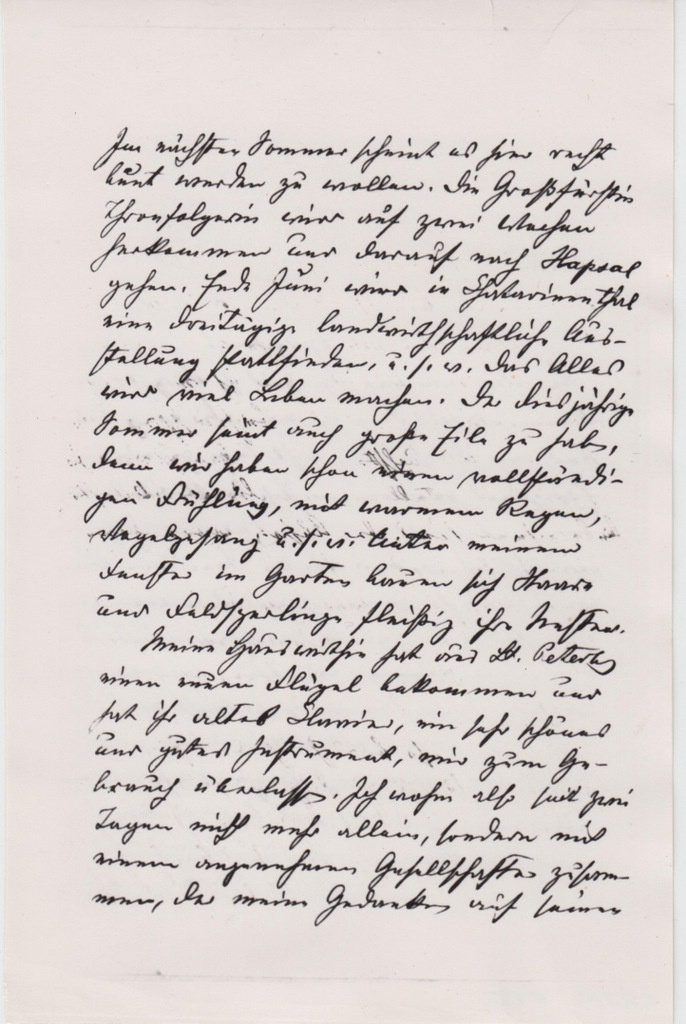 Im nächsten Sommer scheint es hier recht
bunt werden zu wollen. Die Großfürstin
Thronfolgerin wird auf zwei Wochen
herkommen und darauf nach Hapsal
gehen. Ende Juni wird in Catharinenthal
eine dreitägige landwirthschaftliche Aus-
stellung stattfinden, u. s. w. Das Alles
wird viel Leben machen. Der diesjährige
Sommer scheint auch große Eile zu haben,
denn wir haben schon einen vollständi-
gen Frühling, mit warmem Regen,
Vogelgesang u. s. w. Unter meinem
Fenster im Garten bauen sich Staare
und Feldsperlinge fleißig ihre Nester.
Meine Hauswirthin hat aus St. Petersb
einen neuen Flügel bekommen und
hat ihr altes Clavier, ein sehr schönes
und gutes Instrument, mir zum Ge-
brauch überlassen. Ich wohne also seit zwei
Tagen nicht mehr allein, sondern mit
einem angenehmen Gesellschafter zusam-
men, der meine Gedanken auf seinen